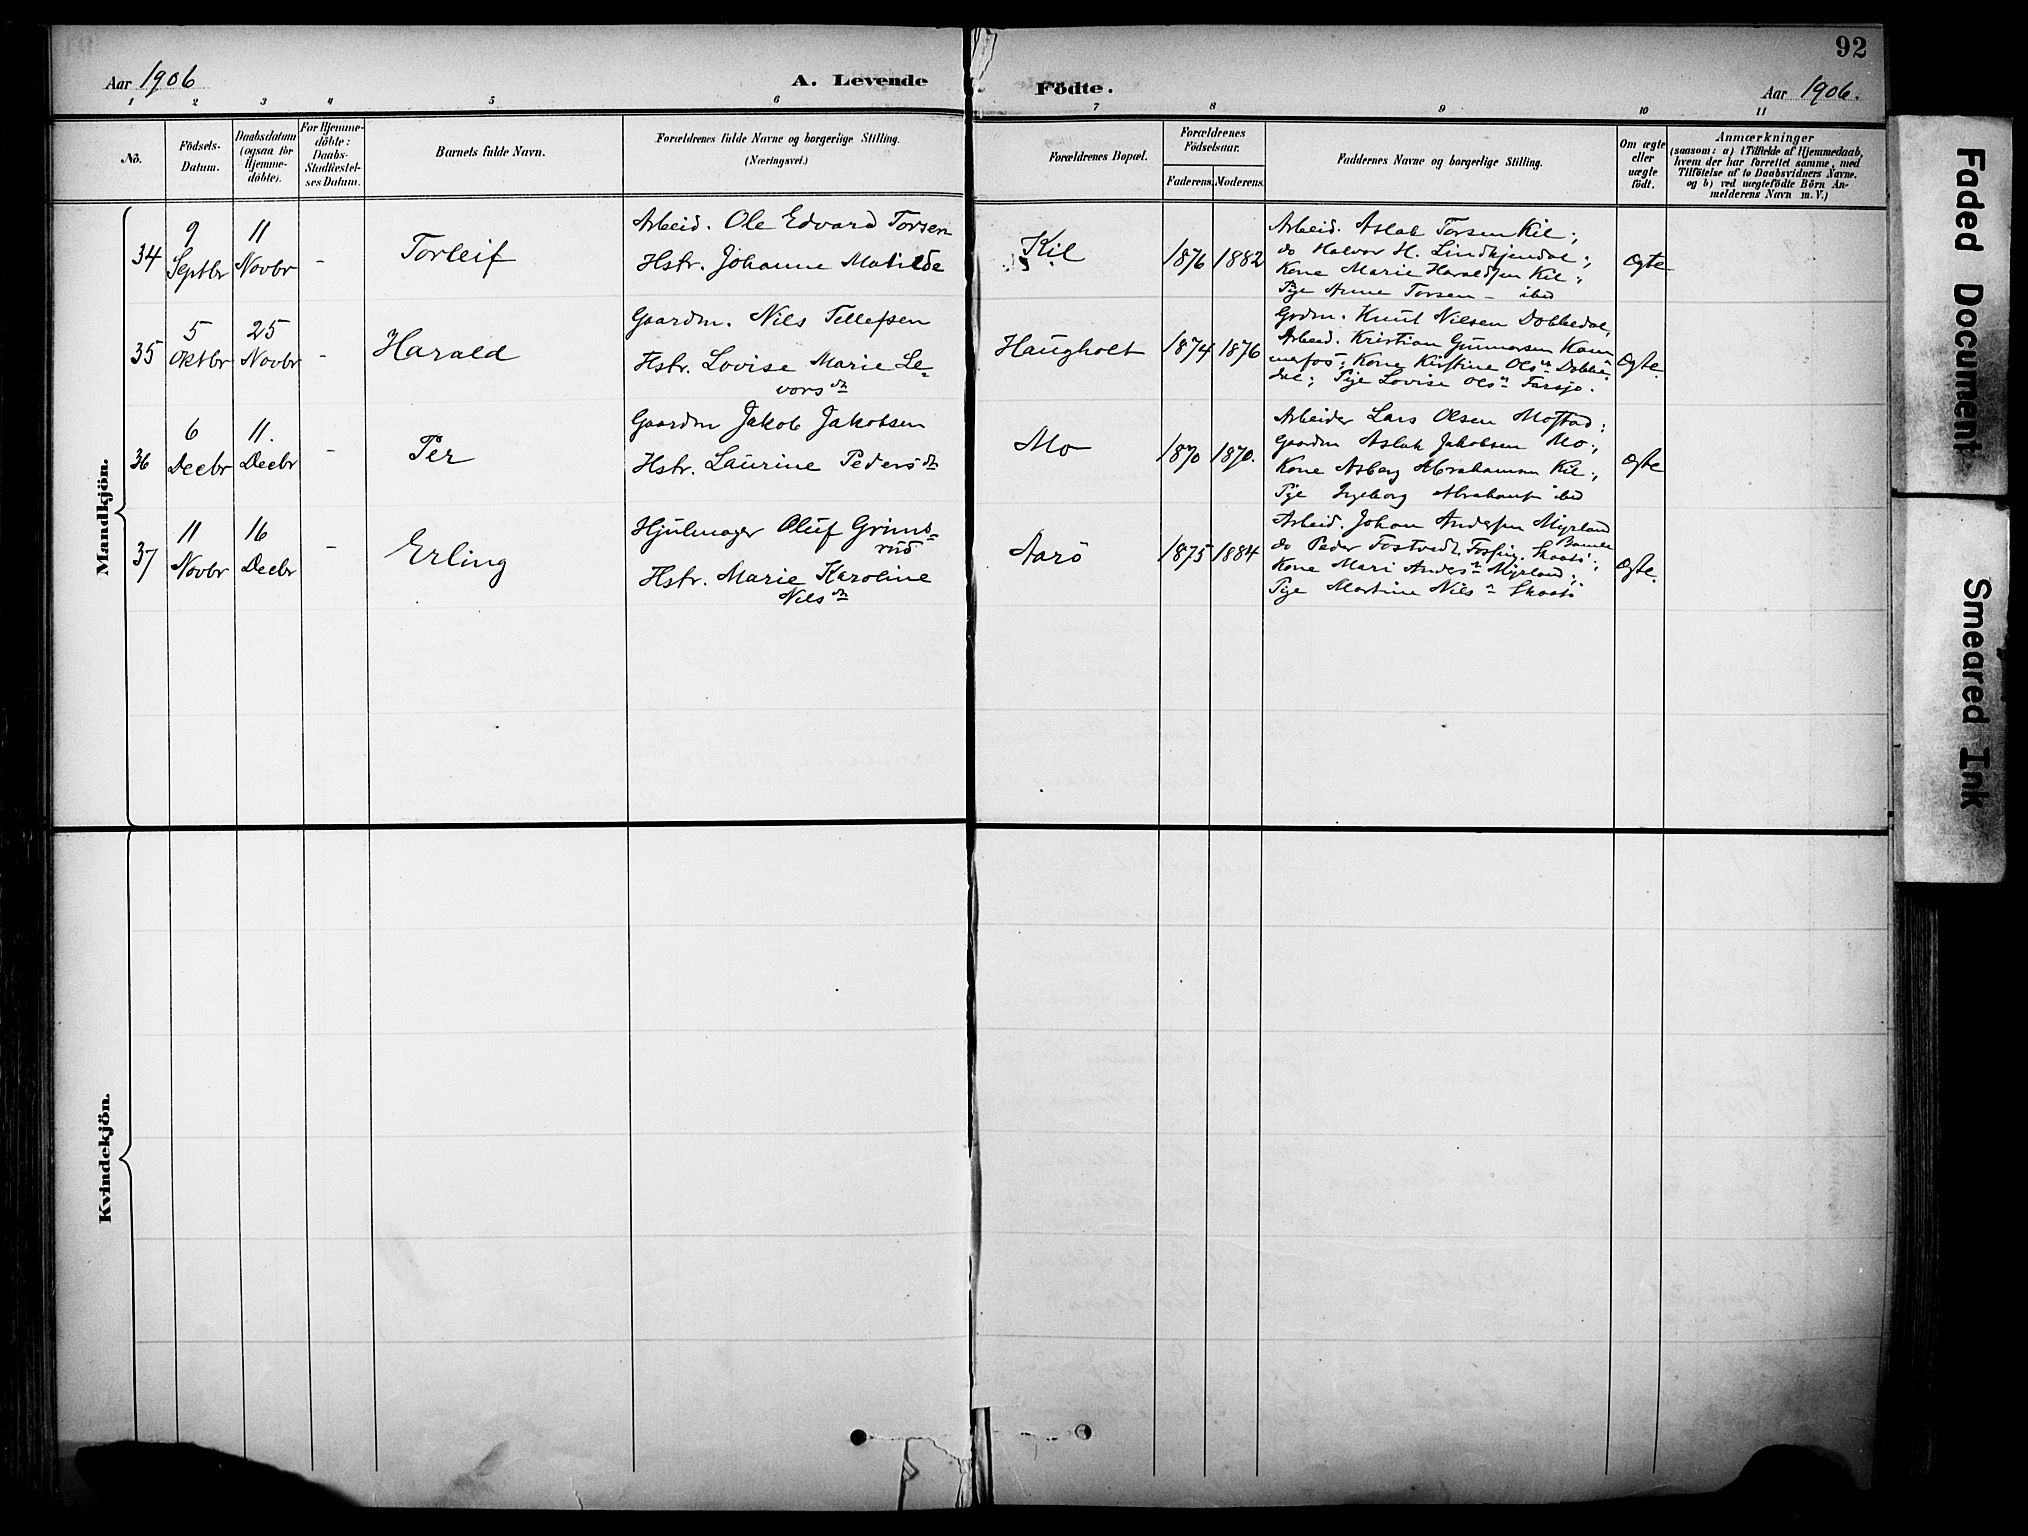 92
Aar 1906
A. Levende
Födte.
Aar 1906.
1 2 3 4 5 6 7 8 9 10 11
No.
Födsels-
Datum.
Daabsdatum
(ogsaa for
Hjemme-
döbte).
For Hjemme-
döbte:
Daabs-
Stadfæstel-
ses Datum.
Barnets fulde Navn.
Forældrenes fulde Navne og borgerlige Stilling.
(Næringsvei.)
Forældrenes Bopæl.
Forældrenes
Födselsaar.
Faderens. Moderens.
Faddernes Navne og borgerlige Stilling.
Om ægte
eller
uægte
födt.
Anmærkninger
(saasom: a) i Tilfælde af Hjemmedaab,
hvem der har forrettet samme, med
Tilföielse af to Daabsvidners Navne.
og b) ved uægtefödte Börn An-
melderens Navn m. V.)
Mandkjön.
34
9
Septbr
11
Novbr
-
Torleif
Arbeid. Ole Edvard Torsen
Hstr. Johanne Matilde
Kil
1876 1882
Arbeid. Aslak Torsen Kil;
do Halvor H. Lindkjendal;
Kone Marie Haraldsen Kil;
Pige Anne Torsen - ibid
Ægte
35
5
Oktbr
25
Novbr
-
Harald
Gaardm. Nils Tellefsen
Hstr. Lovise Marie Le-
vorsdr
Haugholt
1874 1876
Grdm. Knut Nilsen Dobbedal,
Arbeid. Kristian Gunnarsen Kam
mefos; Kone Kirstine Olsn Dobbe-
dal; Pige Lovise Olsn Farsjø.
Ægte.
36
6
Decbr
11.
Decbr
-
Per
Gaardm Jakob Jakobsen
Hstr. Laurine Pedersdr
Mo
1870 1870.
Arbeider Lars Olsen Mostad;
Gaardm Aslak Jakobsen Mo;
Kone Asberg Abrahamsen Kil;
Pige Ingeborg Abrahams ibid
Ægte
37
11
Novbr
16
Decbr
-
Erling
Hjulmager Oluf Grims-
rud
Hstr. Marie Karoline
Nilsdr
Aarö
1875 1884
Arbeid. Johan Andersen Myrland
Bamle
do Peder Tostvedt Fossing. Skaatö;
Kone Mari Andersn Myrland;
Pige Martine Nilsn Skaatö
Ægte.
Kvindekjön.
Faded Document
Smeared Ink